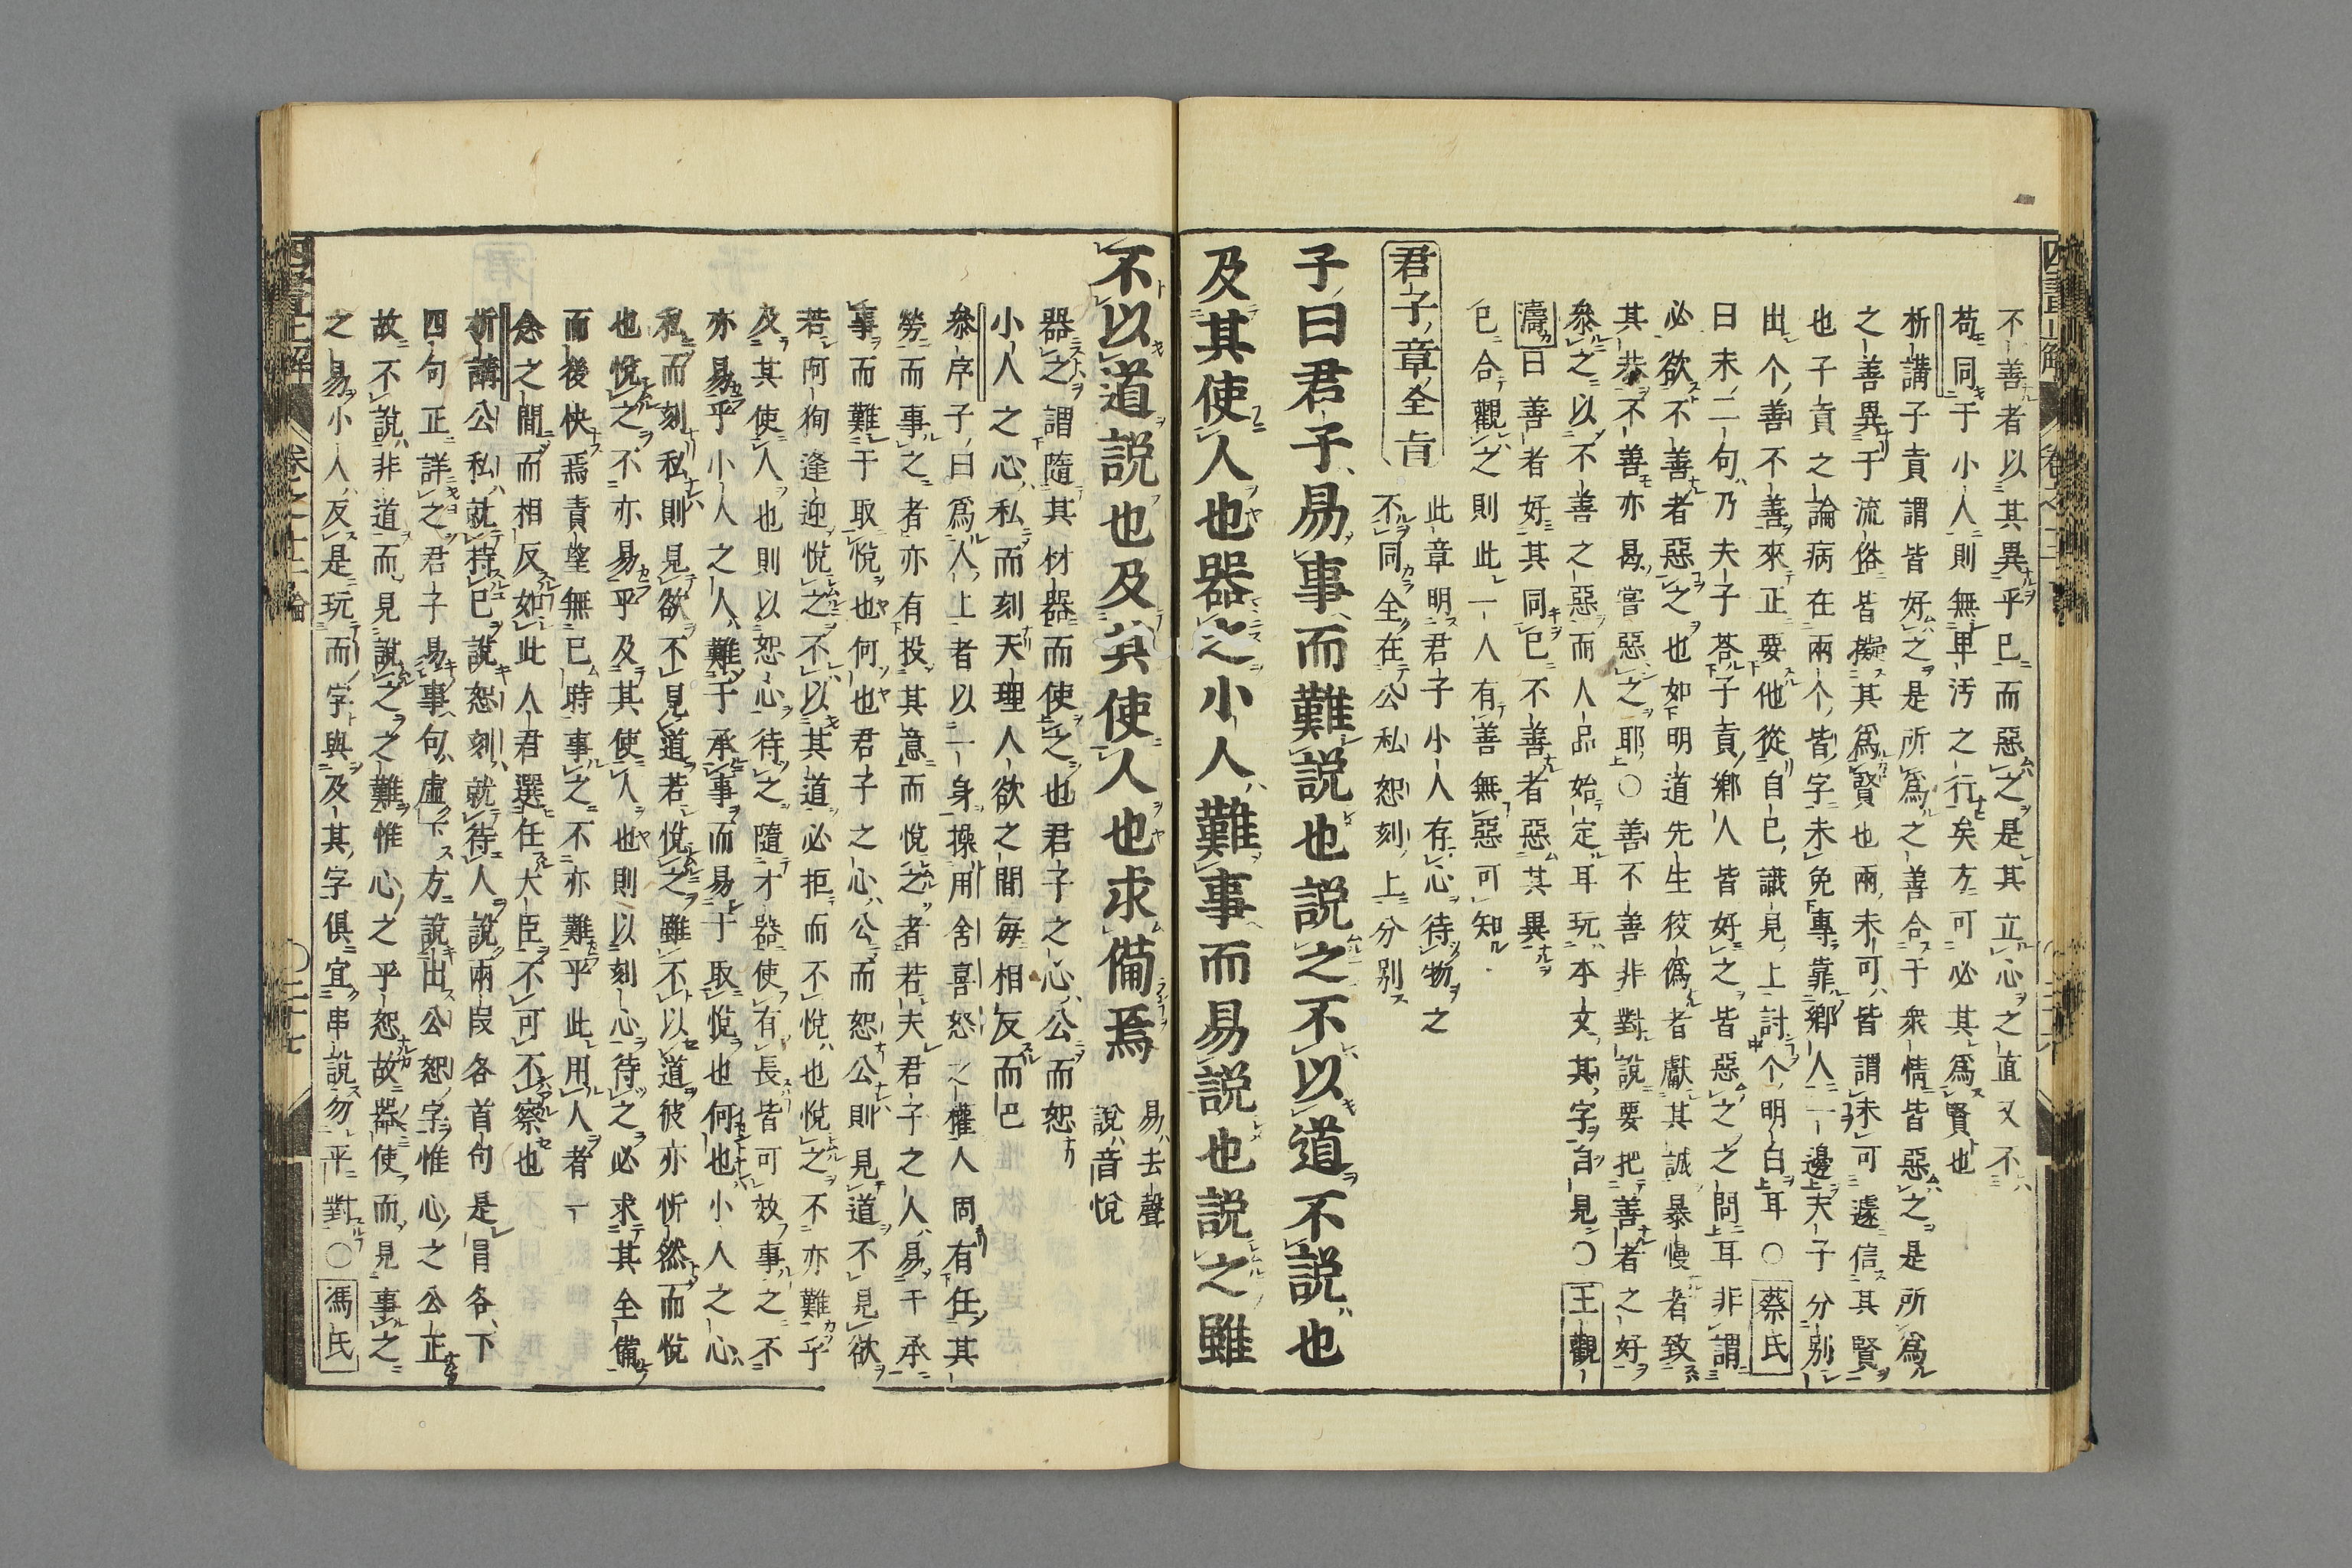 不善者以其異乎已而惡之是其立心之直又不
苟同于小人則無卑汚之行矣方可必其爲賢也
析講子貢謂皆好之是所爲之善合于衆情皆惡之是所爲
之善異于流俗皆擬其爲賢也兩未可皆謂未可遽信其賢
也子貢之論病在兩个皆字未免專靠鄉人一邊夫子分別
出个善不善來正要他從自已識見上討个明白耳〇蔡氏
曰末二句乃夫子荅子貢鄉人皆好之皆惡之之問耳非謂
必欲不善者惡之也如明道先生狡僞者獻其誠暴慢者致
其恭不善亦曷嘗惡之耶〇善不善非對說要把善者之好
叅之以不善之惡而人品始定耳玩本文其字自見〇王觀
濤曰善者好其同已不善者惡其異
已合觀之則此一人有善無惡可知
君子章全旨
此章明君子小人存心待物之
不同全在公私恕刻上分別
子曰君子易事而難說也說之不以道不說也
及其使人也器之小人難事而易說也說之雖
不以道說也及其使人也求備焉
易去聲
說音悅
器之謂隨其材器而使之也君子之心公而恕
小人之心私而刻天理人欲之間每相反而已
叅序子曰爲人上者以一身操用舍喜怒之權人固有任其
勞而事之者亦有投其意而悅之者若夫君子之人易于承
事而難于取悅也何也君子之心公而恕公則見道不見欲
若阿狥逢迎悅之不以其道必拒而不悅也悅之不亦難乎
及其使人也則以恕心待之隨才器使有長皆可效事之不
亦易乎小人之人難于承事而易于取悅也何也小人之心
私而刻私則見欲不見道若悅之雖不以道彼亦忻然而悅
也悅之不亦易乎及其使人也則以刻心待之必求其全備
而後快焉責望無已時事之不亦難乎此用人者一
念之間而相反如此人君選任大臣不可不察也
析講公私就持已說恕刻就待人說兩段各首句是冐各下
四句正詳之君子易事句虛下方說出公恕字惟心之公正
故不說非道而見說之之難惟心之乎恕故器使而見事之
之易小人反是玩而字與及其字俱宜串說勿平對〇馮氏